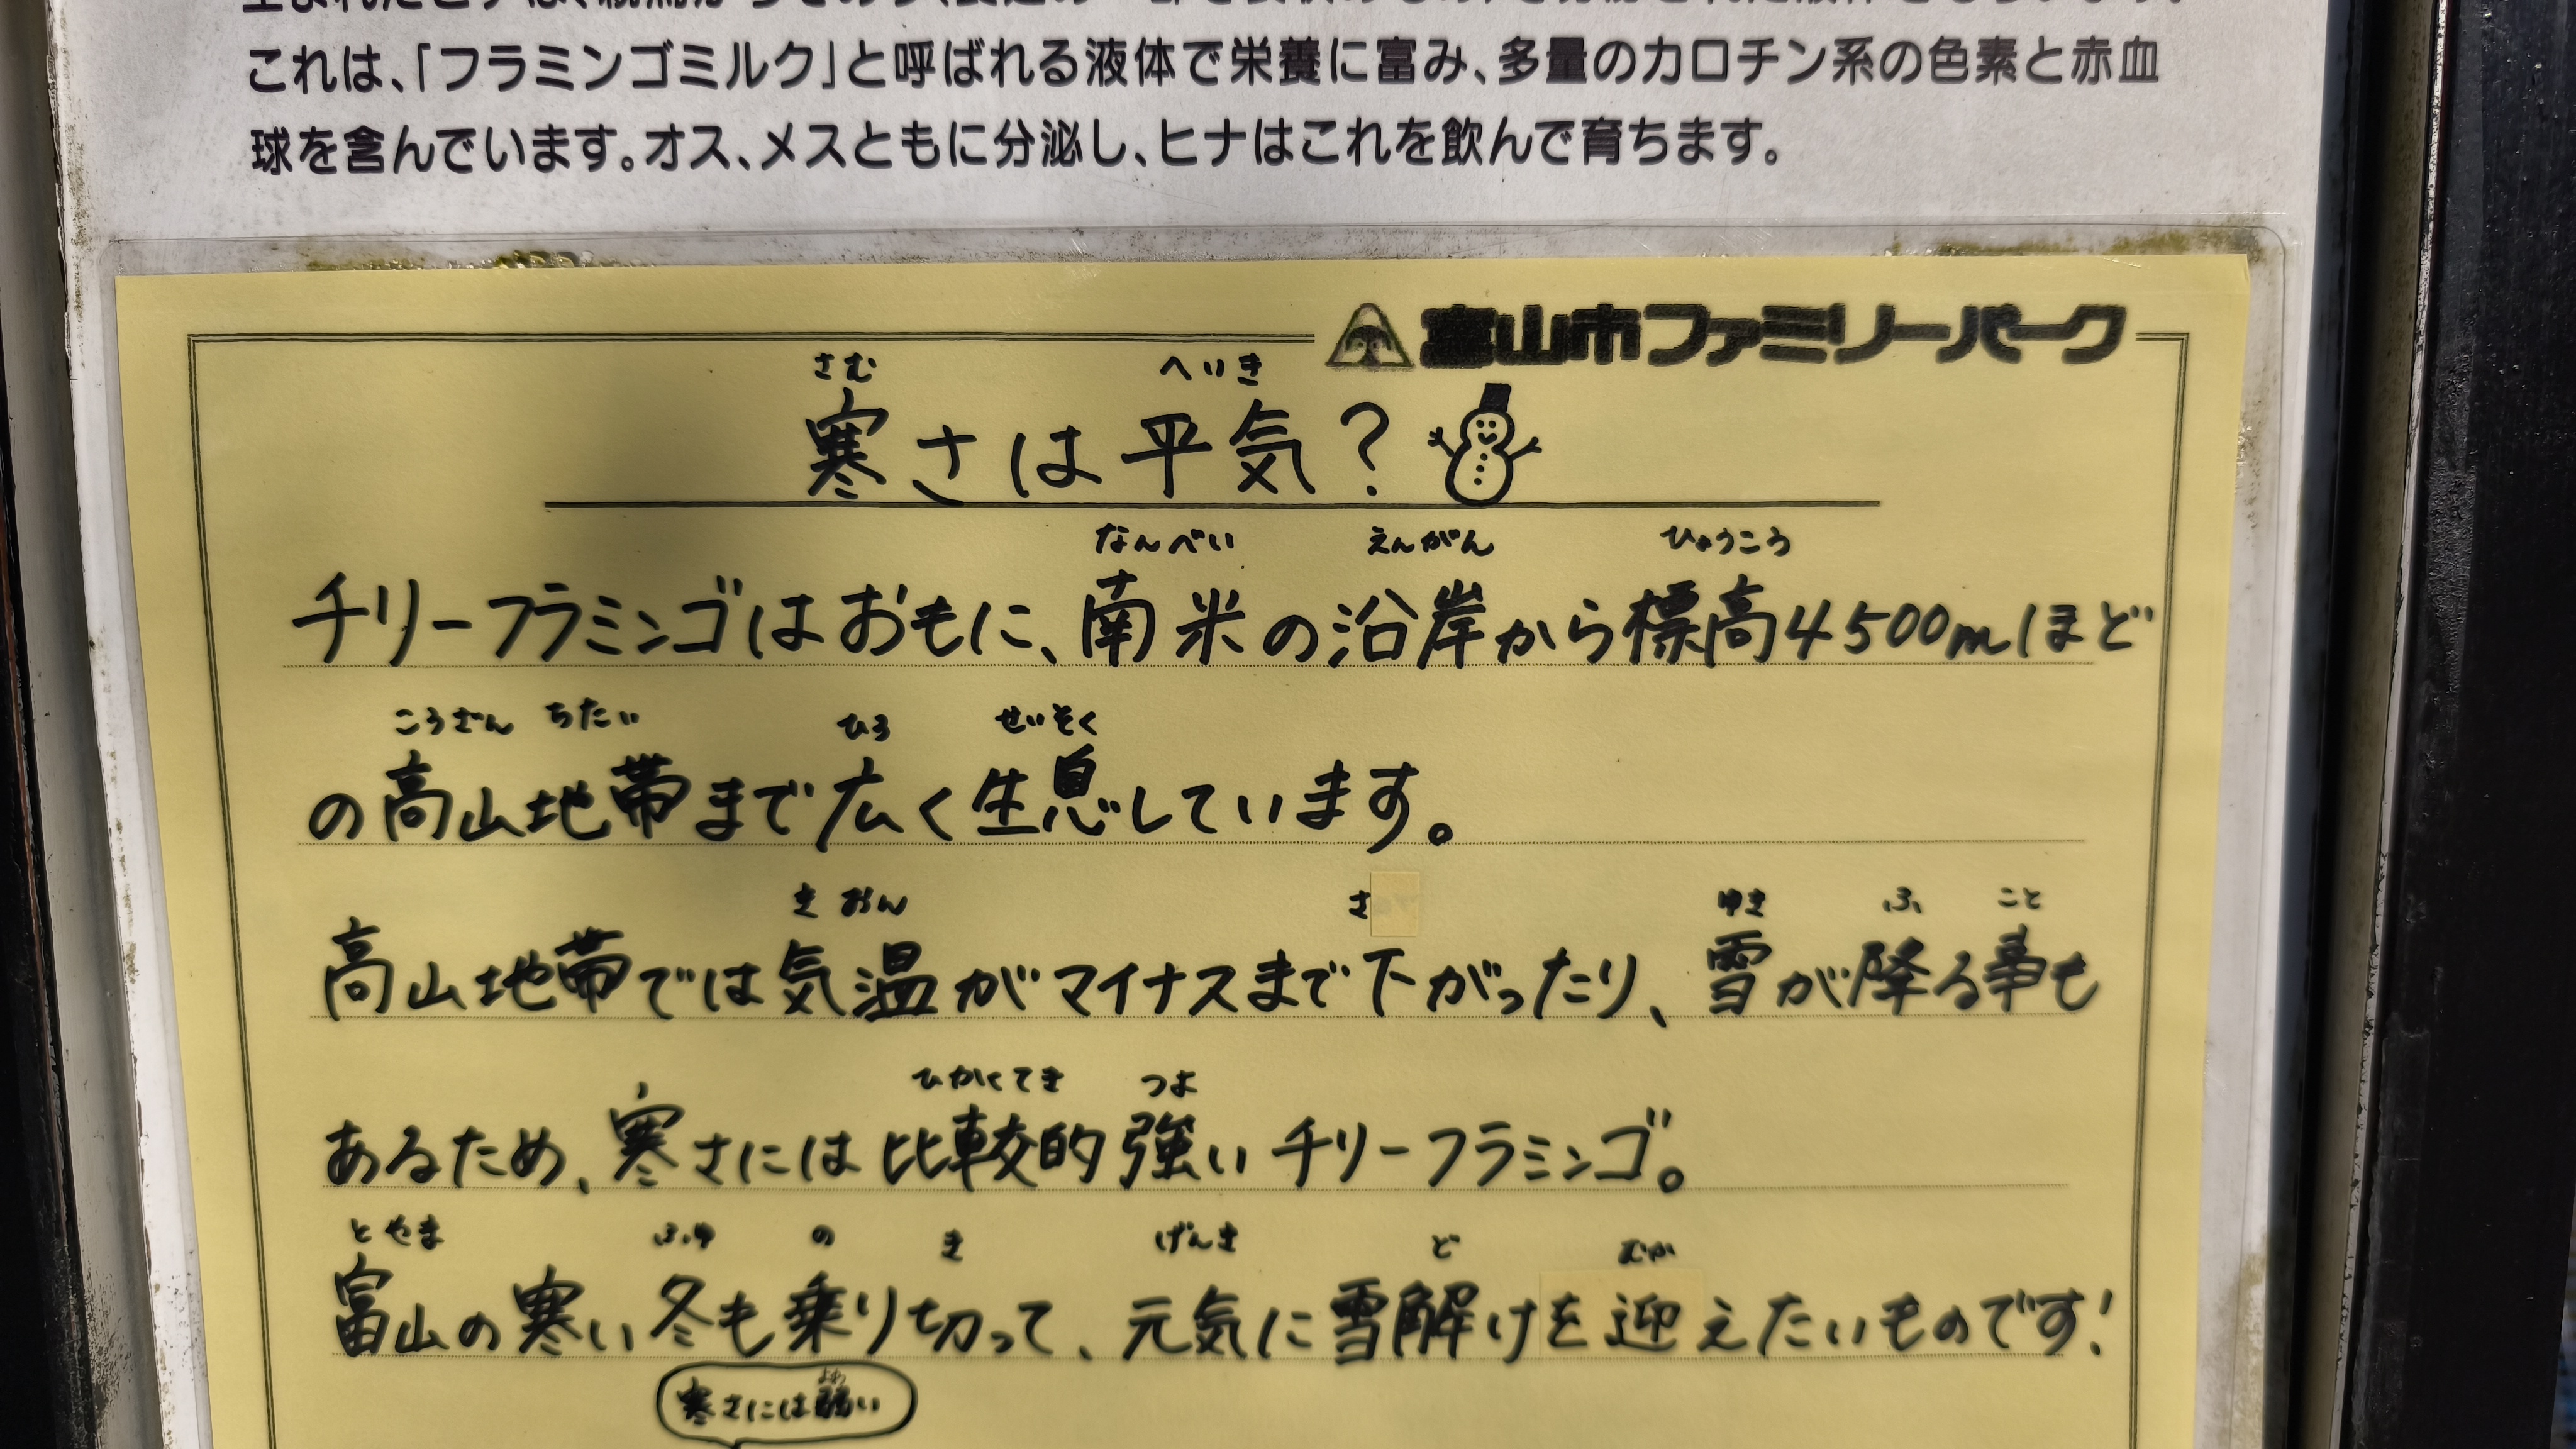 これは、「フラミンゴミルク」と呼ばれる液体で栄養に富み、多量のカロチン系の色素と赤血
球を含んでいます。オス、メスともに分泌し、ヒナはこれを飲んで育ちます。
富山市ファミリーパーク
さむ へいき
寒さは平気？
なんべい えんがん ひょうこう
チリーフラミンゴはおもに、南米の沿岸から標高4500mほど
こうざん ちたい ひろ せいそく
の高山地帯まで広く生息しています。
き おん さ ゆき ふ こと
高山地帯では気温がマイナスまで下がったり、雪が降る事も
ひかくてき つよ
あるため、寒さには比較的強いチリーフラミンゴ。
とやま ふゆ の き げんき ど むか
富山の寒い冬も乗り切って、元気に雪解けを迎えたいものです！
よわ
寒さには弱い